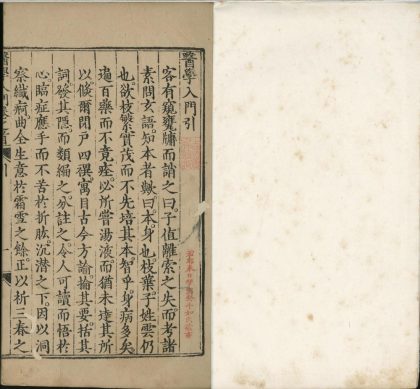 醫學入門引
客有窺甕牖而誚之曰子值離索之失而考諸
素問玄語知本者歟曰本身也枝葉子姓雲仍
也欲枝繁實茂而不先培其本智乎身病多矣
遍百藥而不竟痊必所嘗湯液而猶未達其所
以倏爾閉戶四禩寓目古今方論掄其要括其
詞發其隱而類編之分註之令人可讀而悟於
心臨症應手而不苦於折肱沉潛之下因以洞
察纖痾曲全生意於霜雪之餘正以祈三春之
醫學入門
引
一